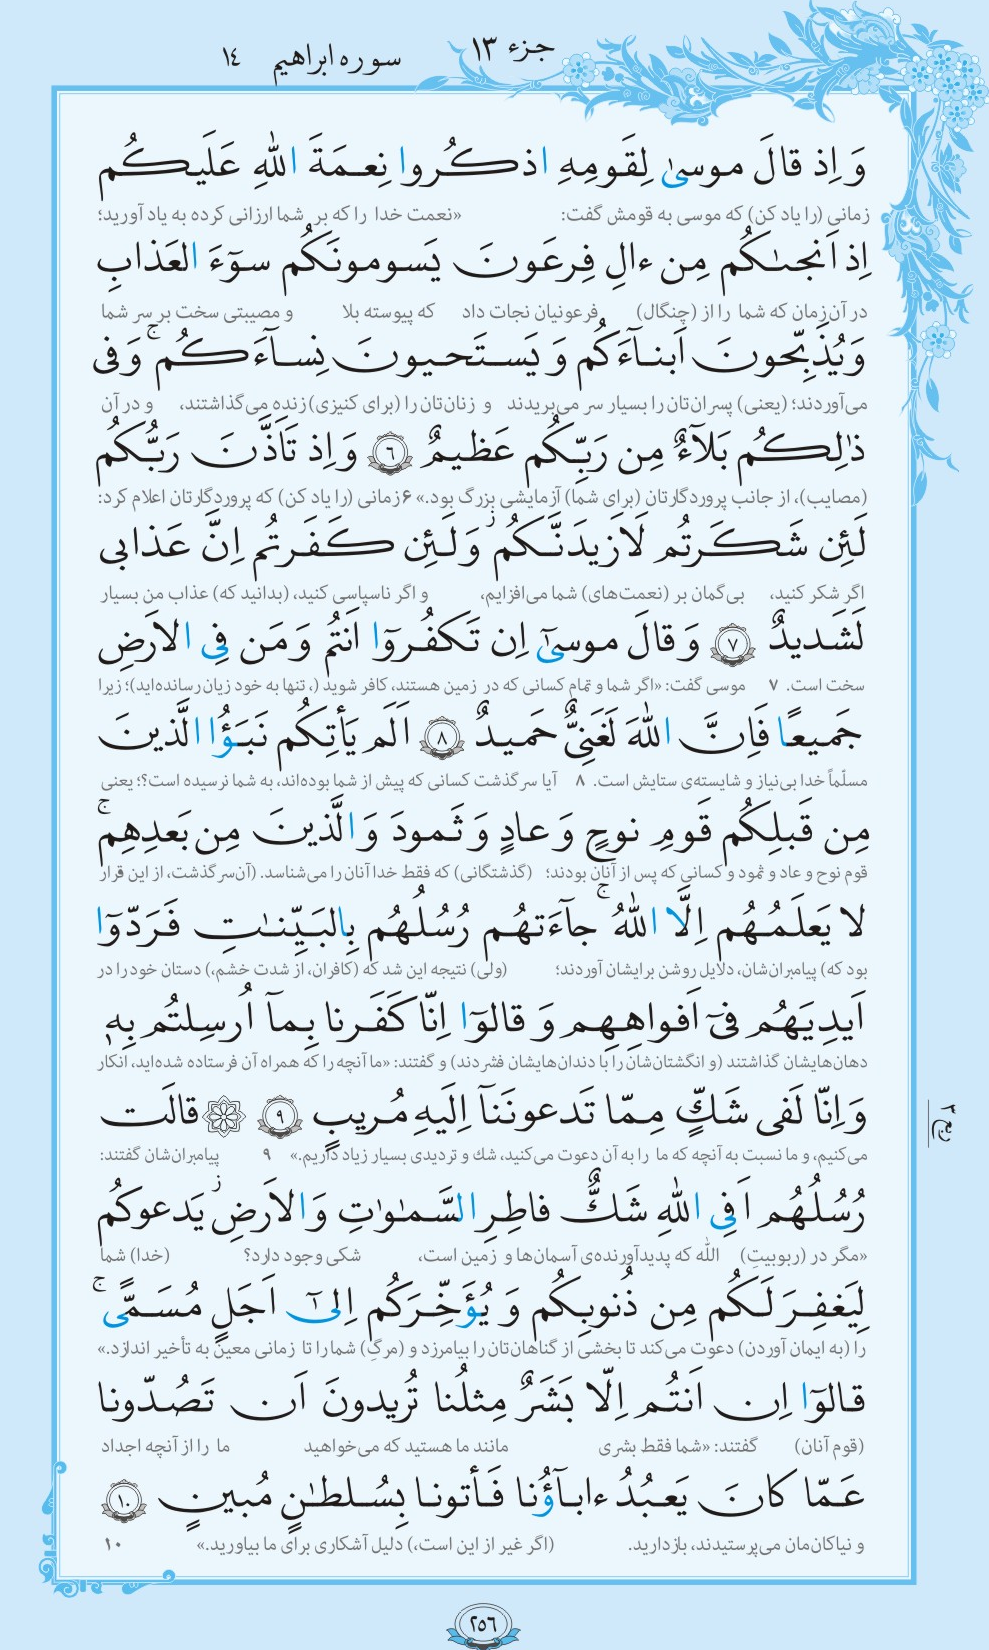 جزء ١٣
سوره ابراهيم ١٤
وَ اِذ قالَ موسىٰ لِقَومِهِ اذكُروا نِعمَةَ اللّٰهِ عَلَيكُم
زمانی (را یاد کن) که موسی به قومش گفت: «نعمت خدا را که بر شما ارزانی کرده به یاد آورید؛
اِذ اَنجىٰكُم مِن ءالِ فِرعَونَ يَسومونَكُم سوٓءَ العَذابِ
در آن زمان که شما را از (چنگال) فرعونیان نجات داد که پیوسته بلا و مصیبتی سخت بر سر شما
وَ يُذَبِّحونَ اَبنآءَكُم وَ يَستَحيونَ نِسآءَكُم ۚ وَ فى
می‌آوردند؛ (یعنی) پسران‌تان را بسیار سر می‌بریدند و زنان‌تان را (برای کنیزی) زنده می‌گذاشتند، و در آن
ذٰلِكُم بَلآءٌ مِن رَبِّكُم عَظيمٌ ٦ وَ اِذ تَاَذَّنَ رَبُّكُم
(مصایب)، از جانب پروردگارتان (برای شما) آزمایشی بزرگ بود.» ۶ زمانی (را یاد کن) که پروردگارتان اعلام کرد:
لَئِن شَكَرتُم لَاَزيدَنَّكُم ۖ وَ لَئِن كَفَرتُم اِنَّ عَذابى
اگر شکر کنید، بی‌گمان بر (نعمت‌های) شما می‌افزایم، و اگر ناسپاسی کنید، (بدانید که) عذاب من بسیار
لَشَديدٌ ٧ وَ قالَ موسىٰٓ اِن تَكفُروٓا اَنتُم وَ مَن فِى الاَرضِ
سخت است. ۷ موسی گفت: «اگر شما و تمام کسانی که در زمین هستند، کافر شوید (، تنها به خود زیان رسانده‌اید)؛ زیرا
جَميعًا فَاِنَّ اللّٰهَ لَغَنِىٌّ حَميدٌ ٨ اَلَم يَأتِكُم نَبَؤُا الَّذينَ
مسلّماً خدا بی‌نیاز و شایسته‌ی ستایش است. ۸ آیا سرگذشت کسانی که پیش از شما بوده‌اند، به شما نرسیده است؟؛ یعنی
مِن قَبلِكُم قَومِ نوحٍ وَ عادٍ وَ ثَمودَ وَ الَّذينَ مِن بَعدِهِم ۚ
قوم نوح و عاد و ثمود و کسانی که پس از آنان بودند؛ (گذشتگانی) که فقط خدا آنان را می‌شناسد. (آن سرگذشت، از این قرار
لا يَعلَمُهُم اِلَّا اللّٰهُ ۚ جآءَتهُم رُسُلُهُم بِالبَيِّنٰتِ فَرَدّوٓا
بود که) پیامبران‌شان، دلایل روشن برایشان آوردند؛ (ولی) نتیجه این شد که (کافران، از شدت خشم،) دستان خود را در
اَيدِيَهُم فىٓ اَفواهِهِم وَ قالوٓا اِنّا كَفَرنا بِمآ اُرسِلتُم بِهٖ
دهان‌هایشان گذاشتند (و انگشتان‌شان را با دندان‌هایشان فشردند) و گفتند: «ما آنچه را که همراه آن فرستاده شده‌اید، انکار
وَ اِنّا لَفى شَكٍّ مِمّا تَدعونَنآ اِلَيهِ مُريبٍ ٩ قالَت
می‌کنیم، و ما نسبت به آنچه که ما را به آن دعوت می‌کنید، شك و تردیدی بسیار زیاد داریم.» ۹ پیامبران‌شان گفتند:
ربع ٣
رُسُلُهُم اَفِى اللّٰهِ شَكٌّ فاطِرِ السَّمٰوٰتِ وَ الاَرضِ ۖ يَدعوكُم
«مگر در (ربوبیتِ) اللّه که پدیدآورنده‌ی آسمان‌ها و زمین است، شکی وجود دارد؟ (خدا) شما
لِيَغفِرَ لَكُم مِن ذُنوبِكُم وَ يُؤَخِّرَكُم اِلىٰٓ اَجَلٍ مُسَمًّى ۚ
را (به ایمان آوردن) دعوت می‌کند تا بخشی از گناهان‌تان را بیامرزد و (مرگِ) شما را تا زمانی معین به تأخیر اندازد.»
قالوٓا اِن اَنتُم اِلّا بَشَرٌ مِثلُنا تُريدونَ اَن تَصُدّونا
(قوم آنان) گفتند: «شما فقط بشری مانند ما هستید که می‌خواهید ما را از آنچه اجداد
عَمّا كانَ يَعبُدُ ءابآؤُنا فَأتونا بِسُلطٰنٍ مُبينٍ ١٠
و نیاکان‌مان می‌پرستیدند، بازدارید. (اگر غیر از این است،) دلیل آشکاری برای ما بیاورید.» ۱۰
٢٥٦